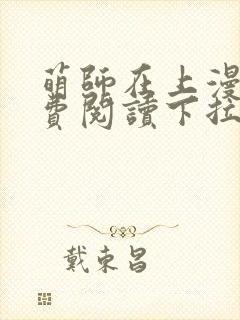 萌師在上漫
費閱讀下拉
戴東昌